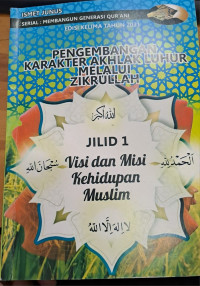 ISMET JUNUS
SERIAL : MEMBANGUN GENERASI QUR'ANI
EDISI KELIMA TAHUN
PENGEMBANGAN
KARAKTER AKHLAK LUHUR
MELALUI
ZIKRULLAH
الله أكبر
JILID 1
Visi dan Misi
Kehidupan
Muslim
سبحان الله
الحمد لله
لا إله إلا الله